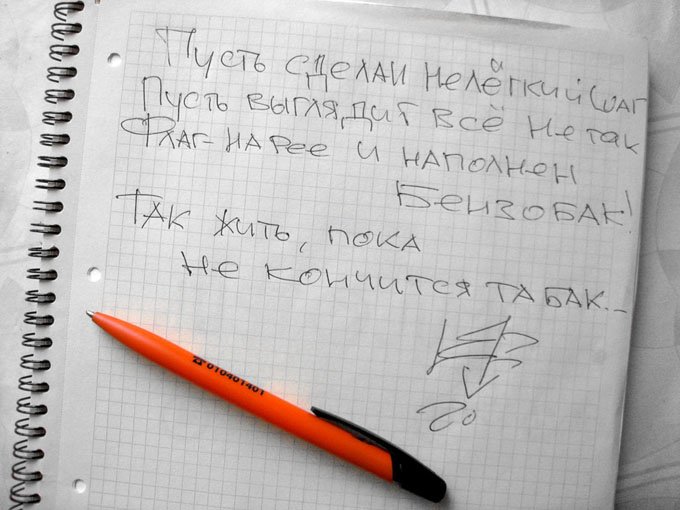 Пусть сделан нелёгкий шаг
Пусть выглядит всё не так
Флаг на рее и наполнен
Бензобак!
Так жить, пока
не кончится табак...
☎010401401